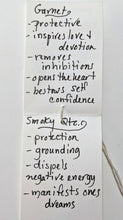 Garnet
-protective
-inspires love &
devotion
-removes
inhibitions
-opens the heart
-bestows self
confidence
Smoky Qtz.
-protection
-grounding
-dispels
negative energy
-manifests ones
dreams